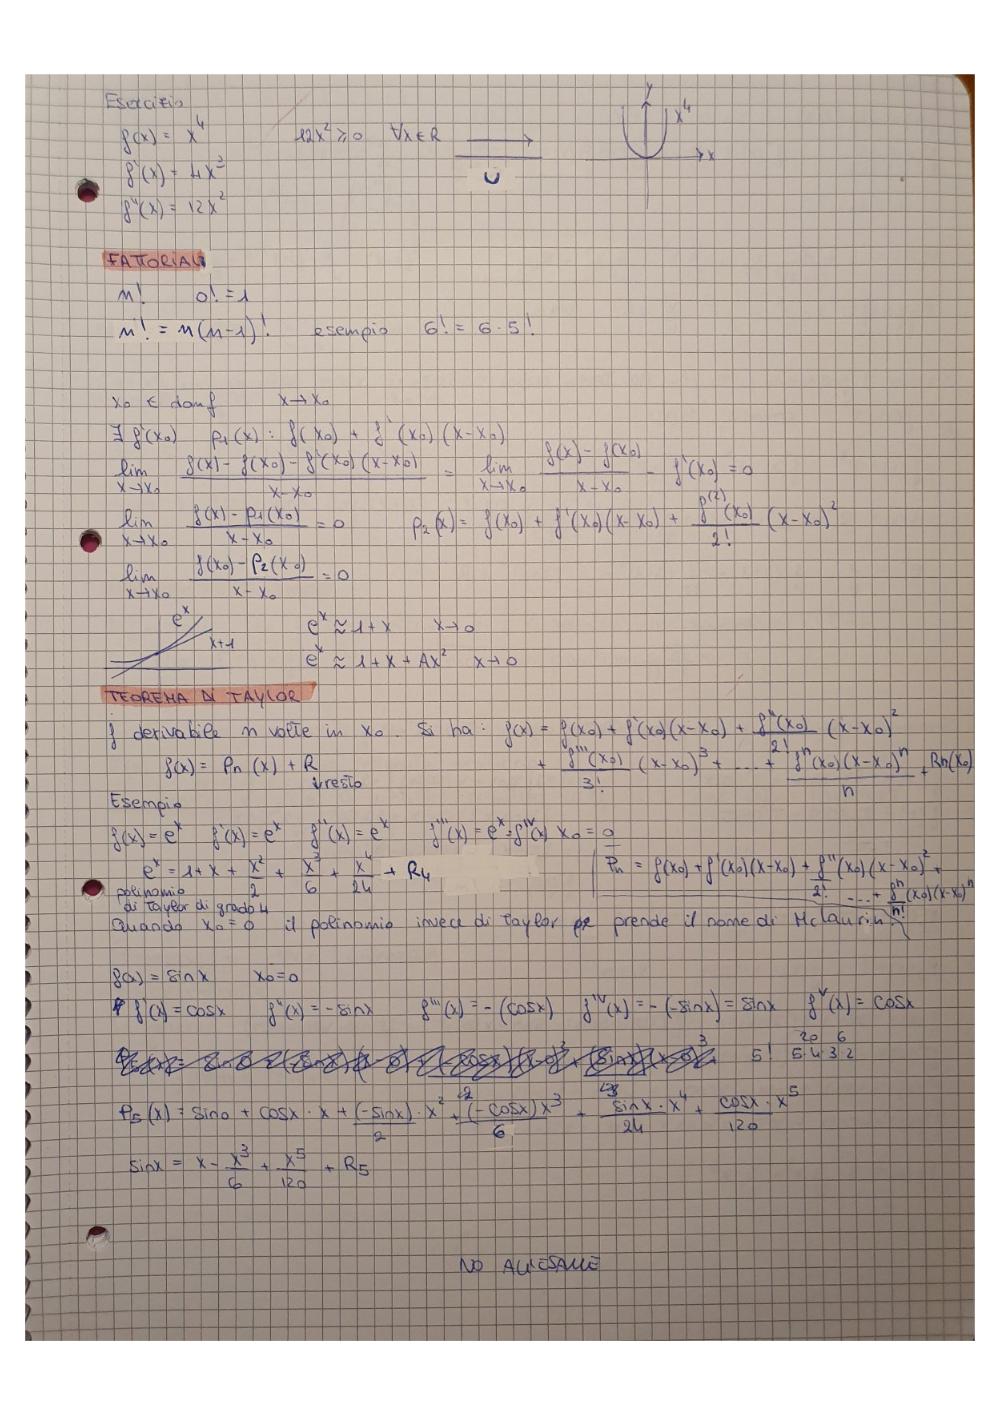 Esercizio
f(x) = x⁴ 12x² ≥ 0 ∀x ∈ R y x⁴ x
f'(x) = 4x³ ∪
f''(x) = 12x²
FATTORIALI
n! 0! = 1
n! = n(n-1)! esempio 6! = 6·5!
x₀ ∈ domf x→x₀
∃ f'(x₀) p₁(x): f(x₀) + f'(x₀)(x-x₀)
lim x→x₀ (f(x) - f(x₀) - f'(x₀)(x-x₀))/(x-x₀) = lim x→x₀ (f(x) - f(x₀))/(x-x₀) - f'(x₀) = 0
lim x→x₀ (f(x) - p₁(x₀))/(x-x₀) = 0 p₂(x) = f(x₀) + f'(x₀)(x-x₀) + f⁽²⁾(x₀)/2! (x-x₀)²
lim x→x₀ (f(x₀) - p₂(x₀))/(x-x₀) = 0
eˣ x+1 eˣ ≈ 1+x x→0
eˣ ≈ 1+x+Ax² x→0
TEOREMA DI TAYLOR
f derivabile n volte in x₀. Si ha: f(x) = f(x₀) + f'(x₀)(x-x₀) + f''(x₀)/2! (x-x₀)²
f(x) = Pn(x) + R + f'''(x₀)/3! (x-x₀)³ + .... + fⁿ(x₀)(x-x₀)ⁿ/n + Rn(x₀)
↓resto
Esempio
f(x) = eˣ f'(x) = eˣ f''(x) = eˣ f'''(x) = eˣ = fᴵⱽ(x) x₀ = 0
eˣ = 1 + x + x²/2 + x³/6 + x⁴/24 + R₄ Pn = f(x₀) + f'(x₀)(x-x₀) + f''(x₀)(x-x₀)²/2! +
polinomio di Taylor di grado 4 ... + fⁿ(x₀)(x-x₀)ⁿ/n!
Quando x₀ = 0 il polinomio invece di Taylor prende il nome di McLaurin
f(x) = sinx x₀=0
f'(x) = cosx f''(x) = -sinx f'''(x) = -(cosx) fᴵⱽ(x) = -(-sinx) = sinx fⱽ(x) = cosx
5! 20 6 5·4·3·2
P₅(x) = sin0 + cosx · x + (-sinx)·x²/2 + (-cosx)x³/6 + sinx·x⁴/24 + cosx·x⁵/120
sinx = x - x³/6 + x⁵/120 + R₅
NO ALL'ESAME